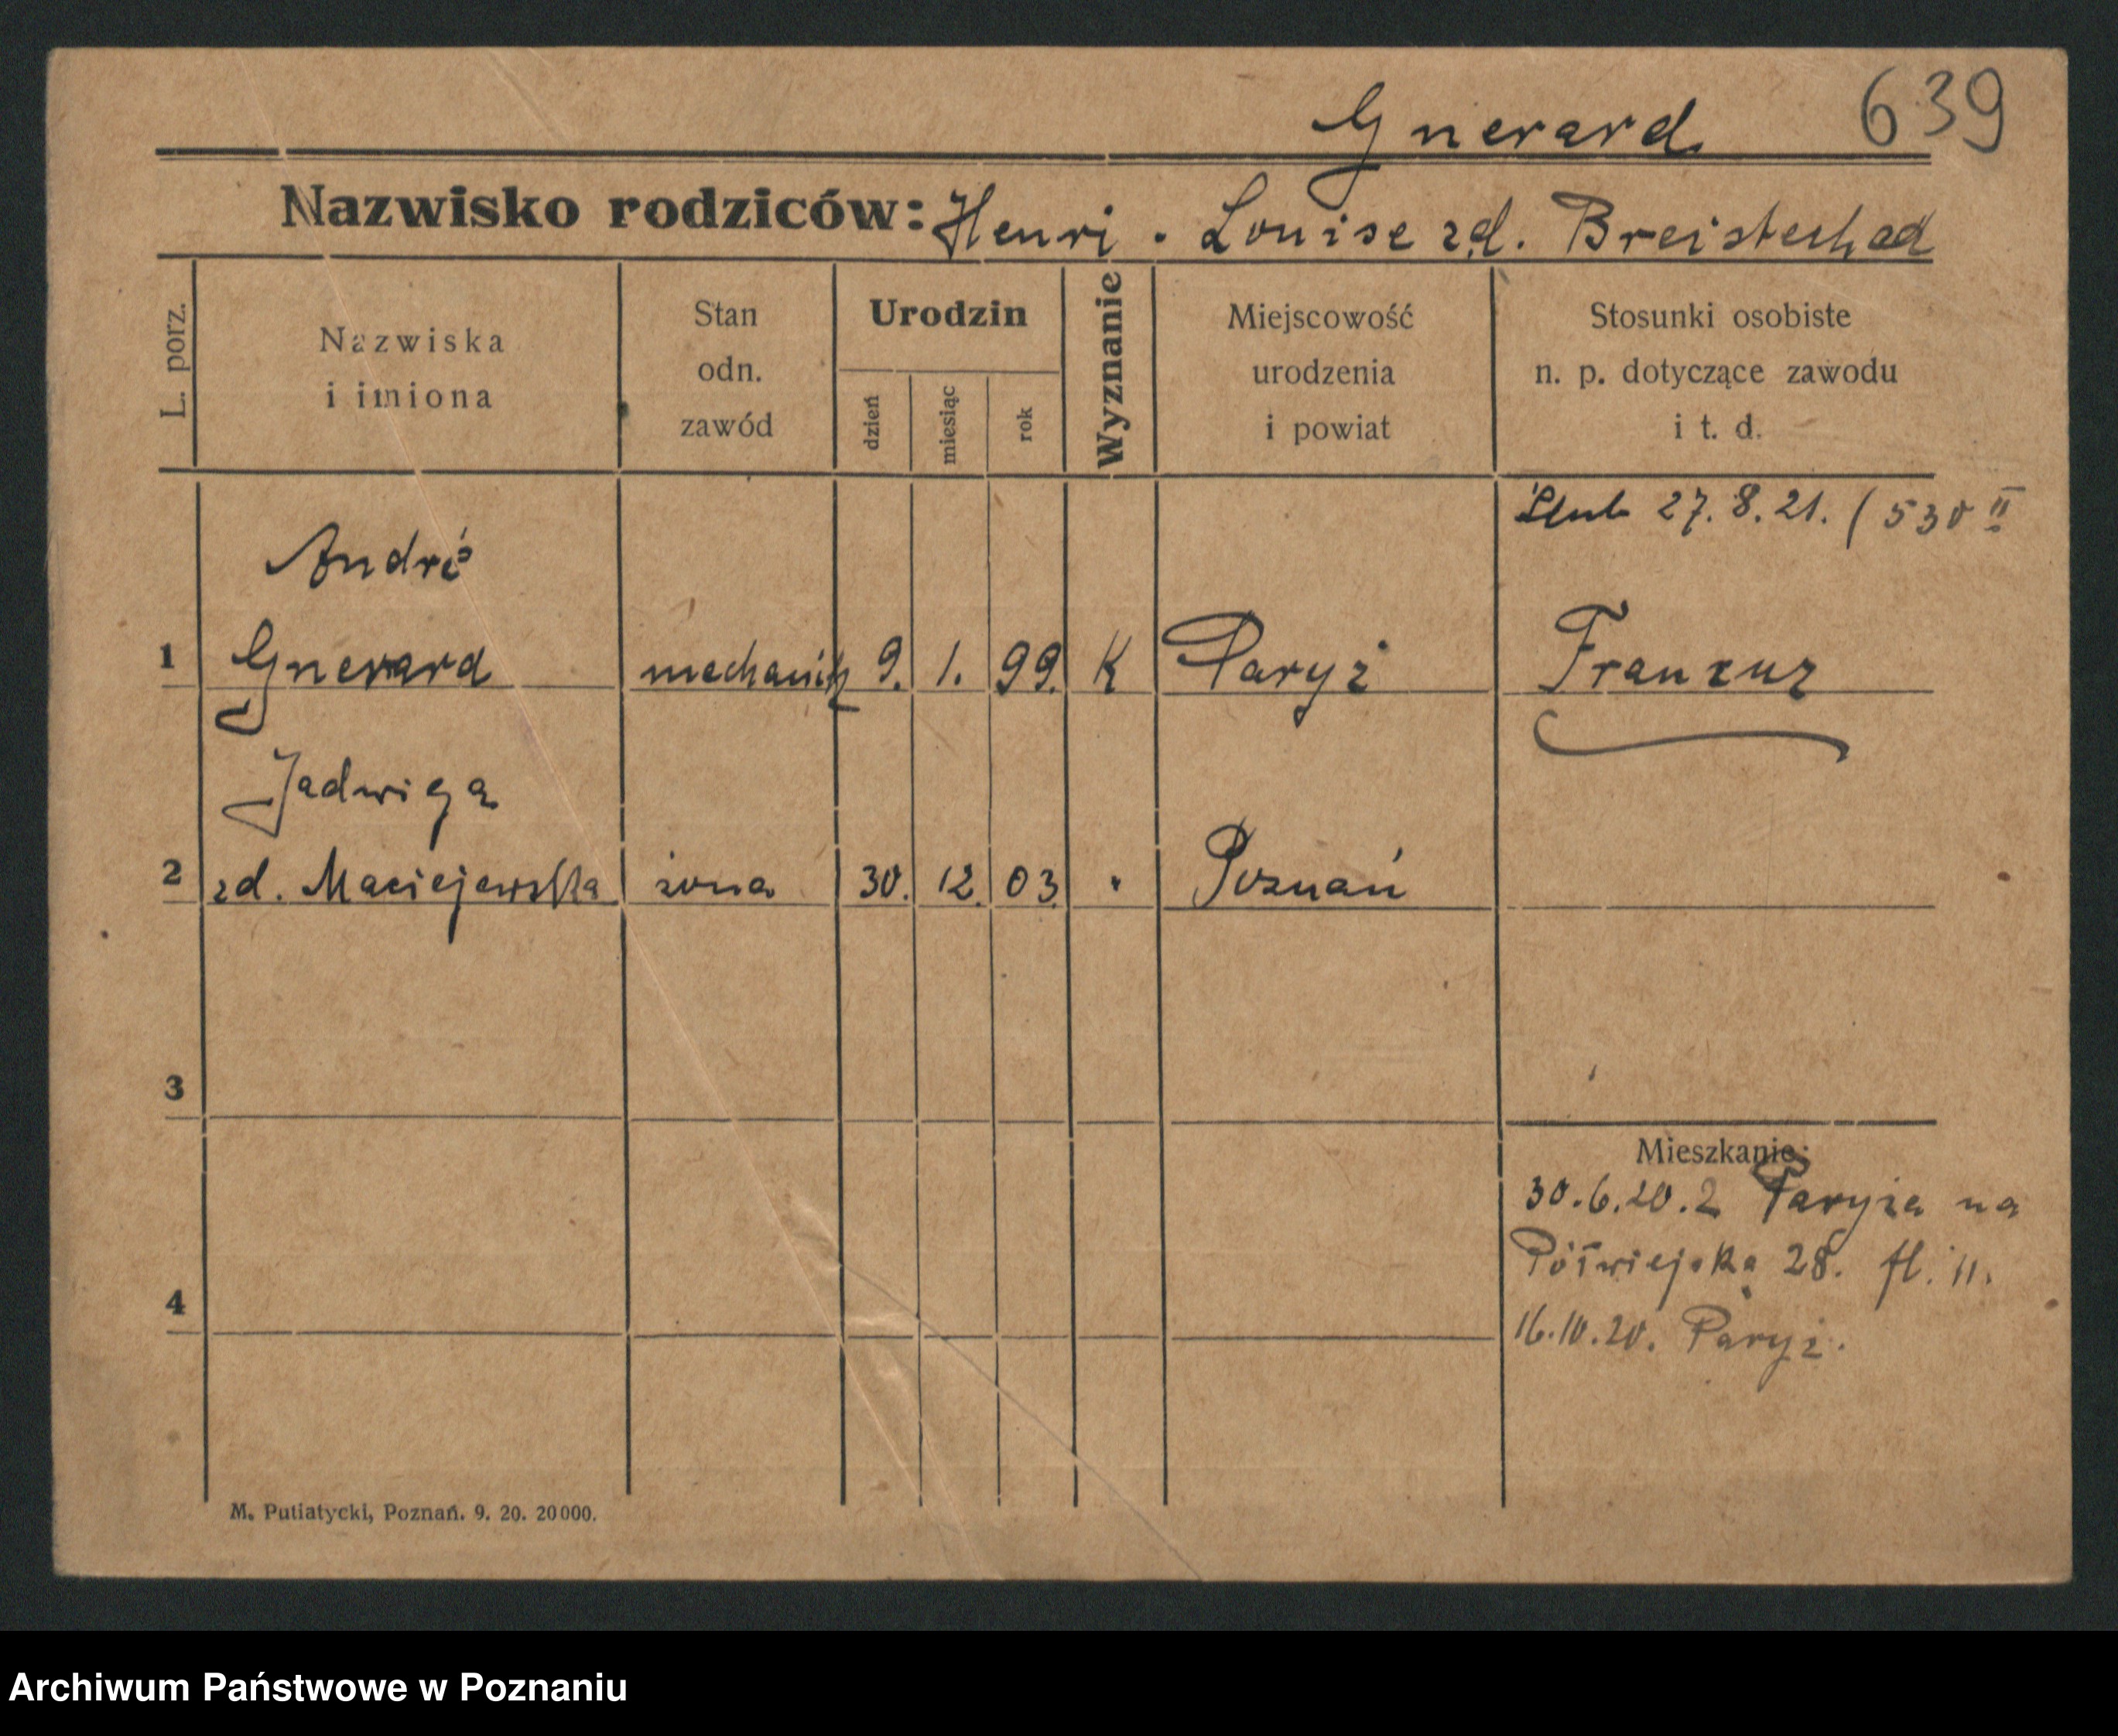 Gnerard 639
Nazwisko rodziców: Henri . Louise zd. Breistechad
L. porz.
Nazwiska
i imiona
Stan
odn.
zawód
Urodzin
dzień
miesiąc
rok
Wyznanie
Miejscowość
urodzenia
i powiat
Stosunki osobiste
n. p. dotyczące zawodu
i t. d.
Ślub 27.8.21. (530 II
André
1 Gnerard mechanik 9. 1. 99. K Paryż Francuz
Jadwiga
2 zd. Maciejewska żona 30. 12. 03. " Poznań
3
Mieszkanie:
30.6.20. z Paryża na
Półwiejską 28. fl. II.
4
16.10.20. Paryż.
M. Putiatycki, Poznań. 9. 20. 20000.
Archiwum Państwowe w Poznaniu